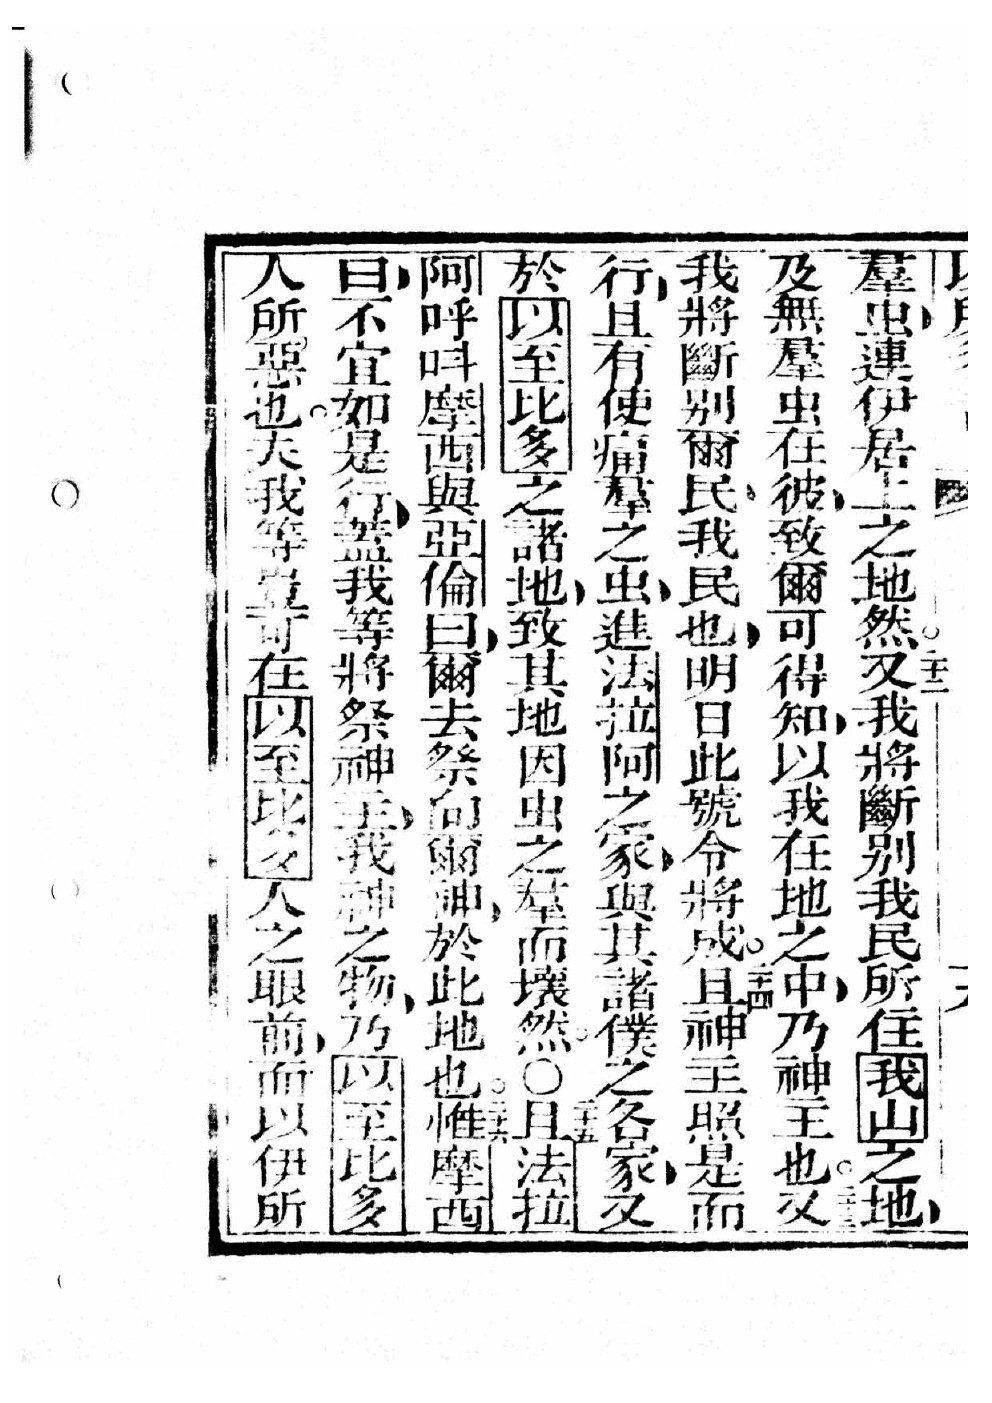 羣虫連伊居之之地然。二十二又我將斷別我民所住我山之地
及無羣虫在彼致爾可得知以我在地之中乃神主也。二十三又
我將斷別爾民我民也明日此號令將成。二十四且神主照是而
行且有使痛羣之虫進法拉阿之家與其諸僕之各家又
於以至比多之諸地致其地因虫之羣而壞然。〇二十五且法拉
阿呼呌摩西與亞倫曰爾去祭向爾神於此地也。二十六惟摩西
曰不宜如是行蓋我等將祭神主我神之物乃以至比多
人所惡也。夫我等豈可在以至比多人之眼前而以伊所